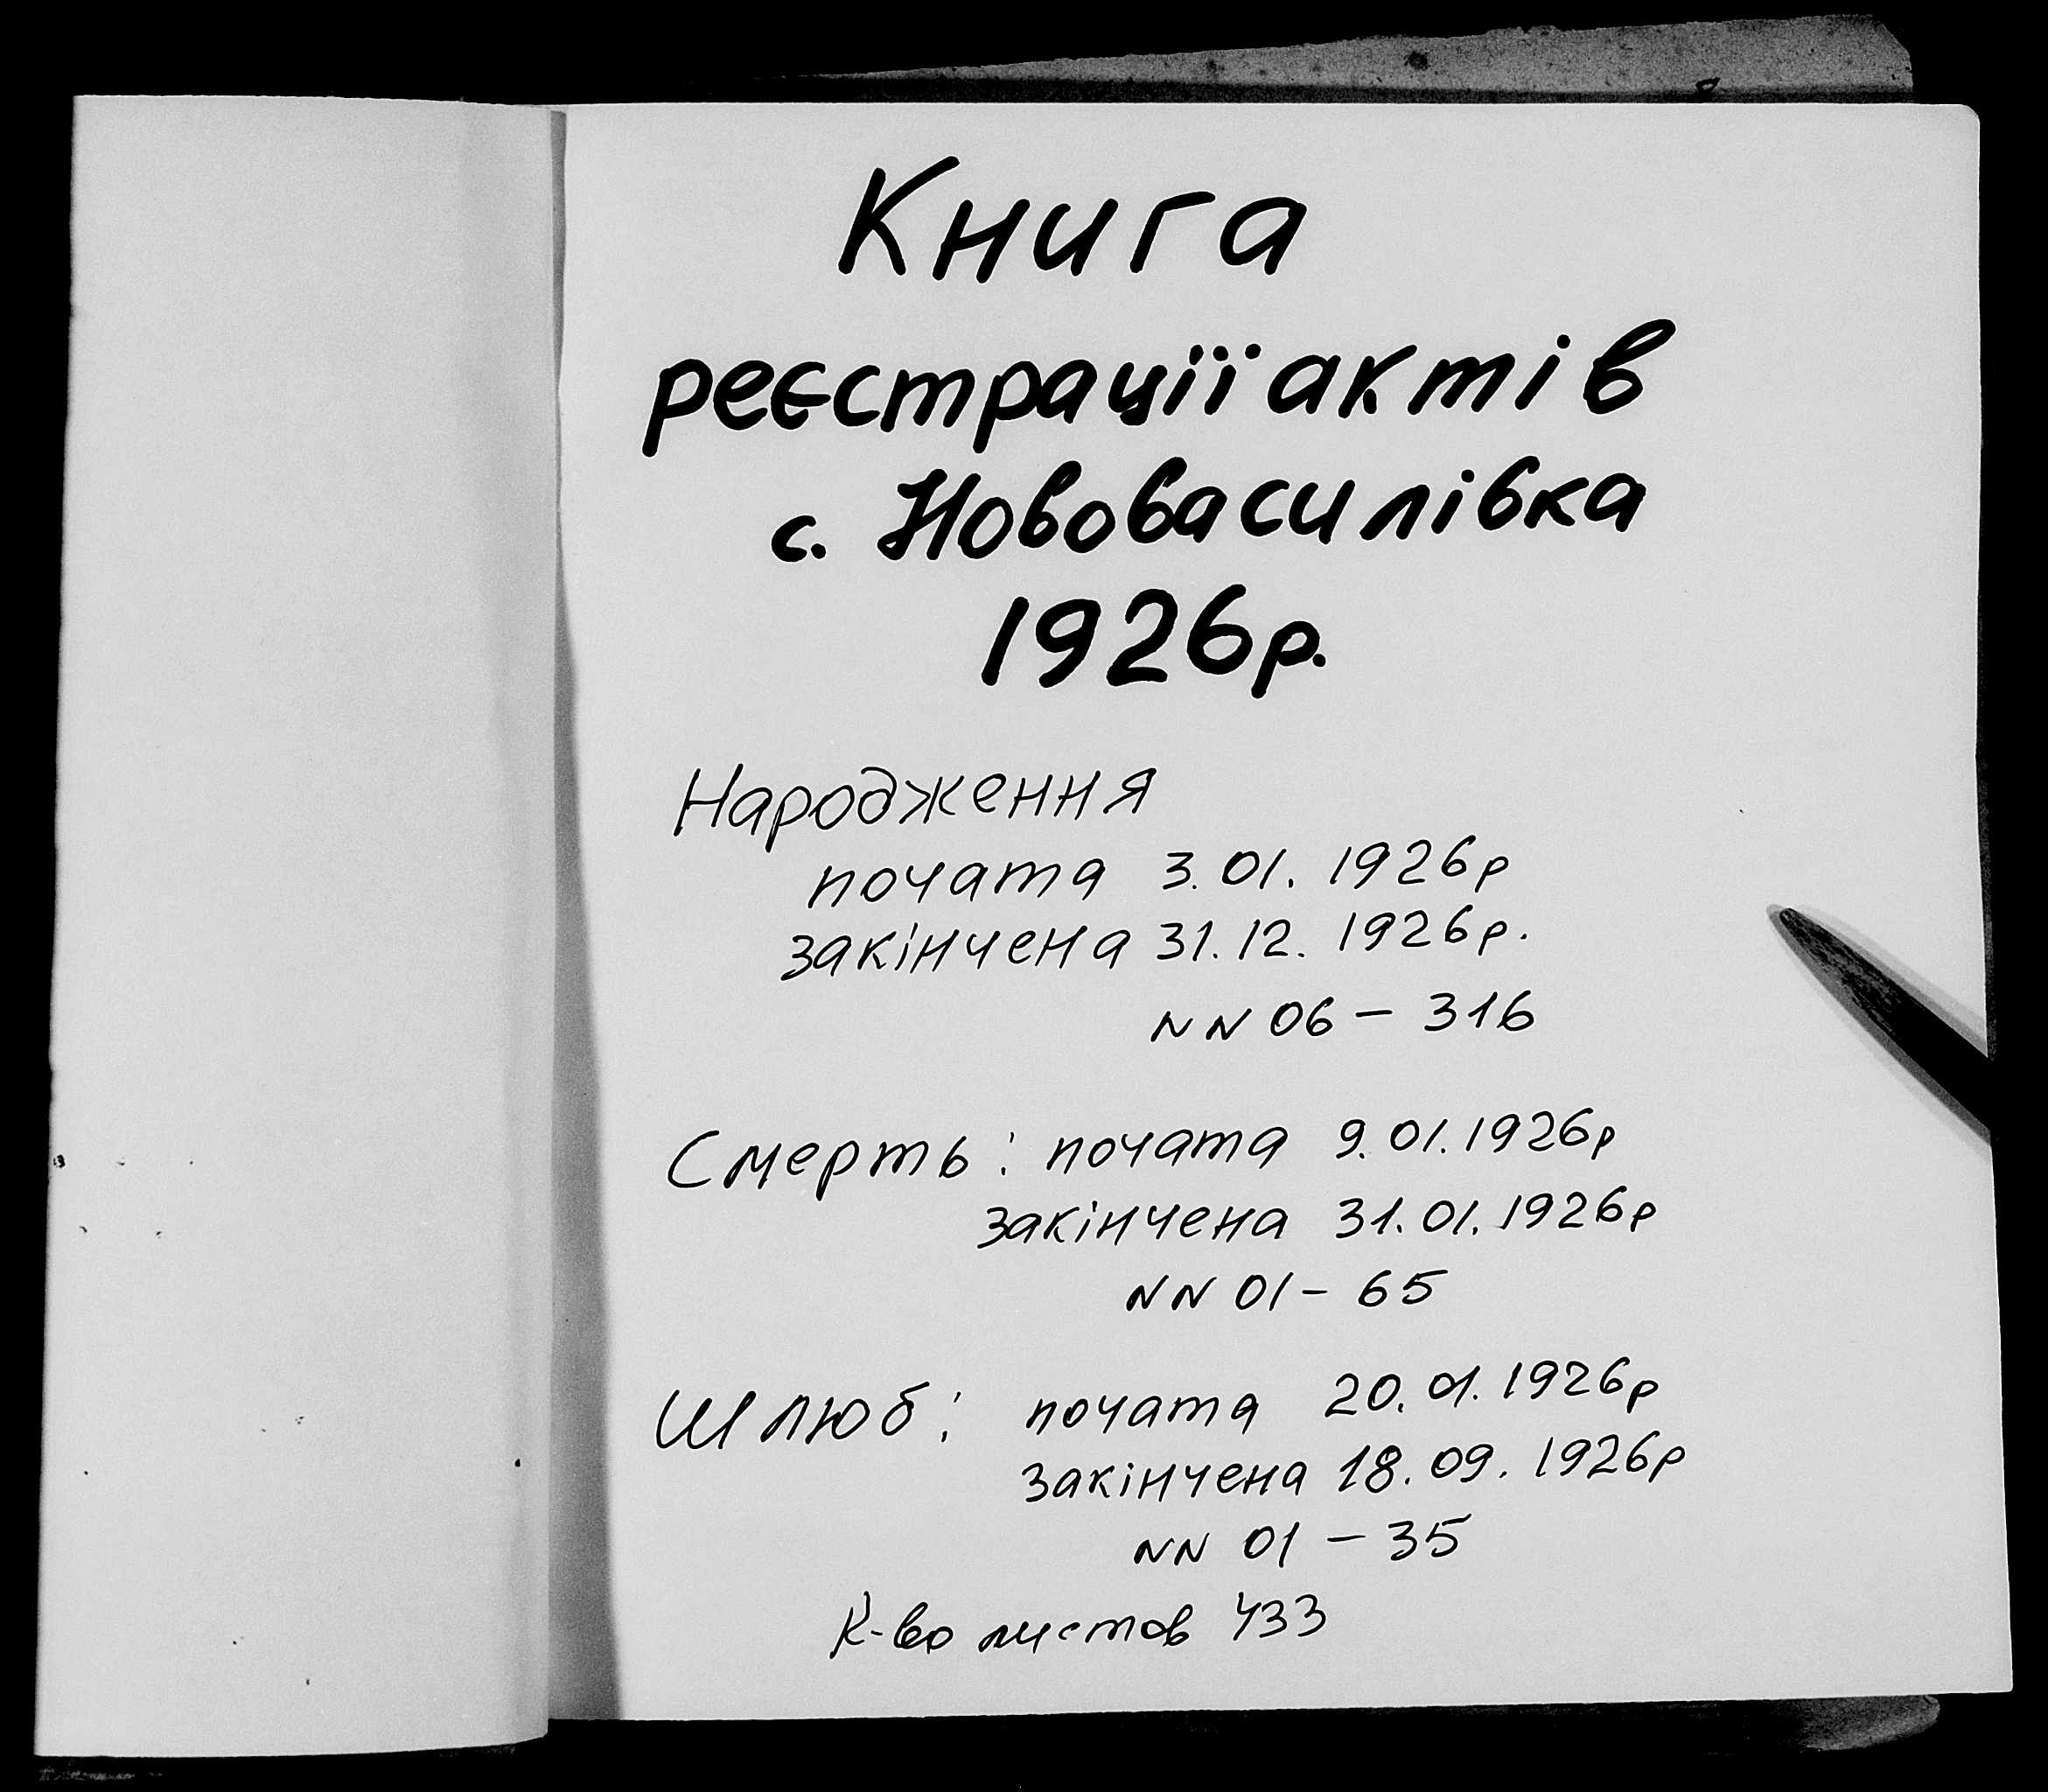 Книга
реєстрації актів
с. Нововасилівка
1926р.
Народження
почата 3.01.1926р
закінчена 31.12.1926р.
NN 06 – 316
Смерть: почата 9.01.1926р
закінчена 31.01.1926р
NN 01 – 65
Шлюб: почата 20.01.1926р
закінчена 18.09.1926р
NN 01 – 35
К-во листов 433